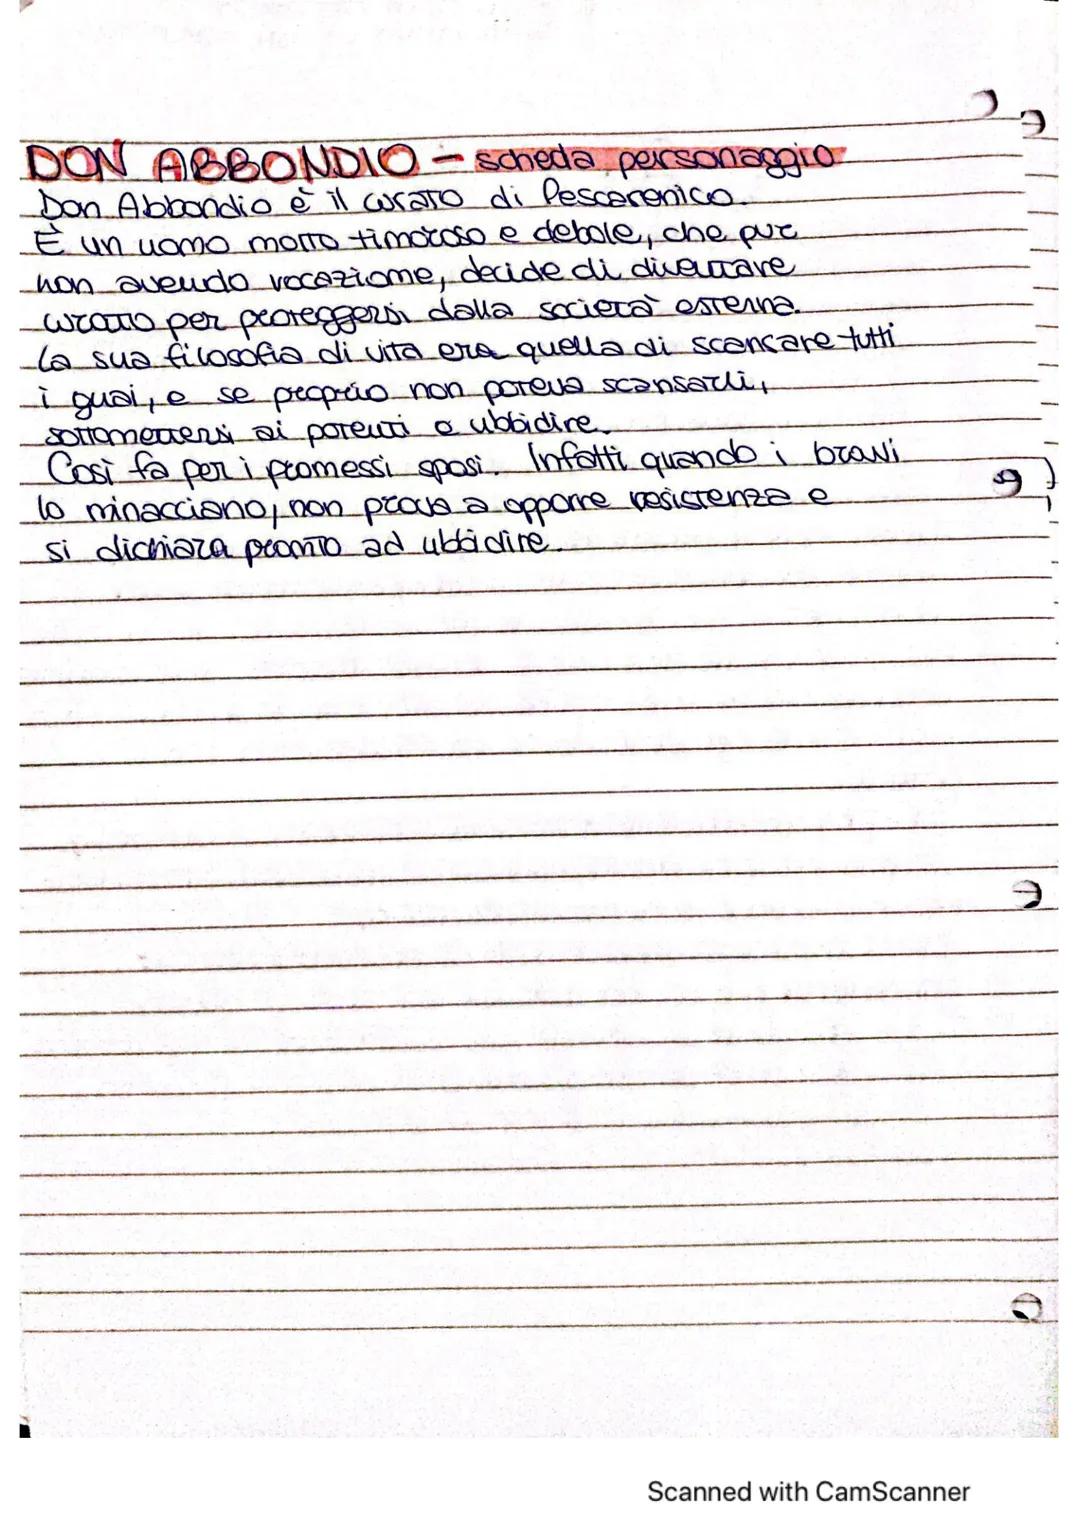 DON ABBONDIO - scheda personaggio
Don Abbondio è il curato di Pescarenico.
È un uomo molto timoroso e debole, che pur
non avendo vocazione, decide di diventare
curato per proteggersi dalla società esterna.
La sua filosofia di vita era quella di scansare tutti
i guai, e se proprio non poteva scansarli,
sottomettersi ai potenti e ubbidire.
Così fa per i promessi sposi. Infatti quando i bravi
lo minacciano, non prova a opporre resistenza e
si dichiara pronto ad ubbidire.
Scanned with CamScanner